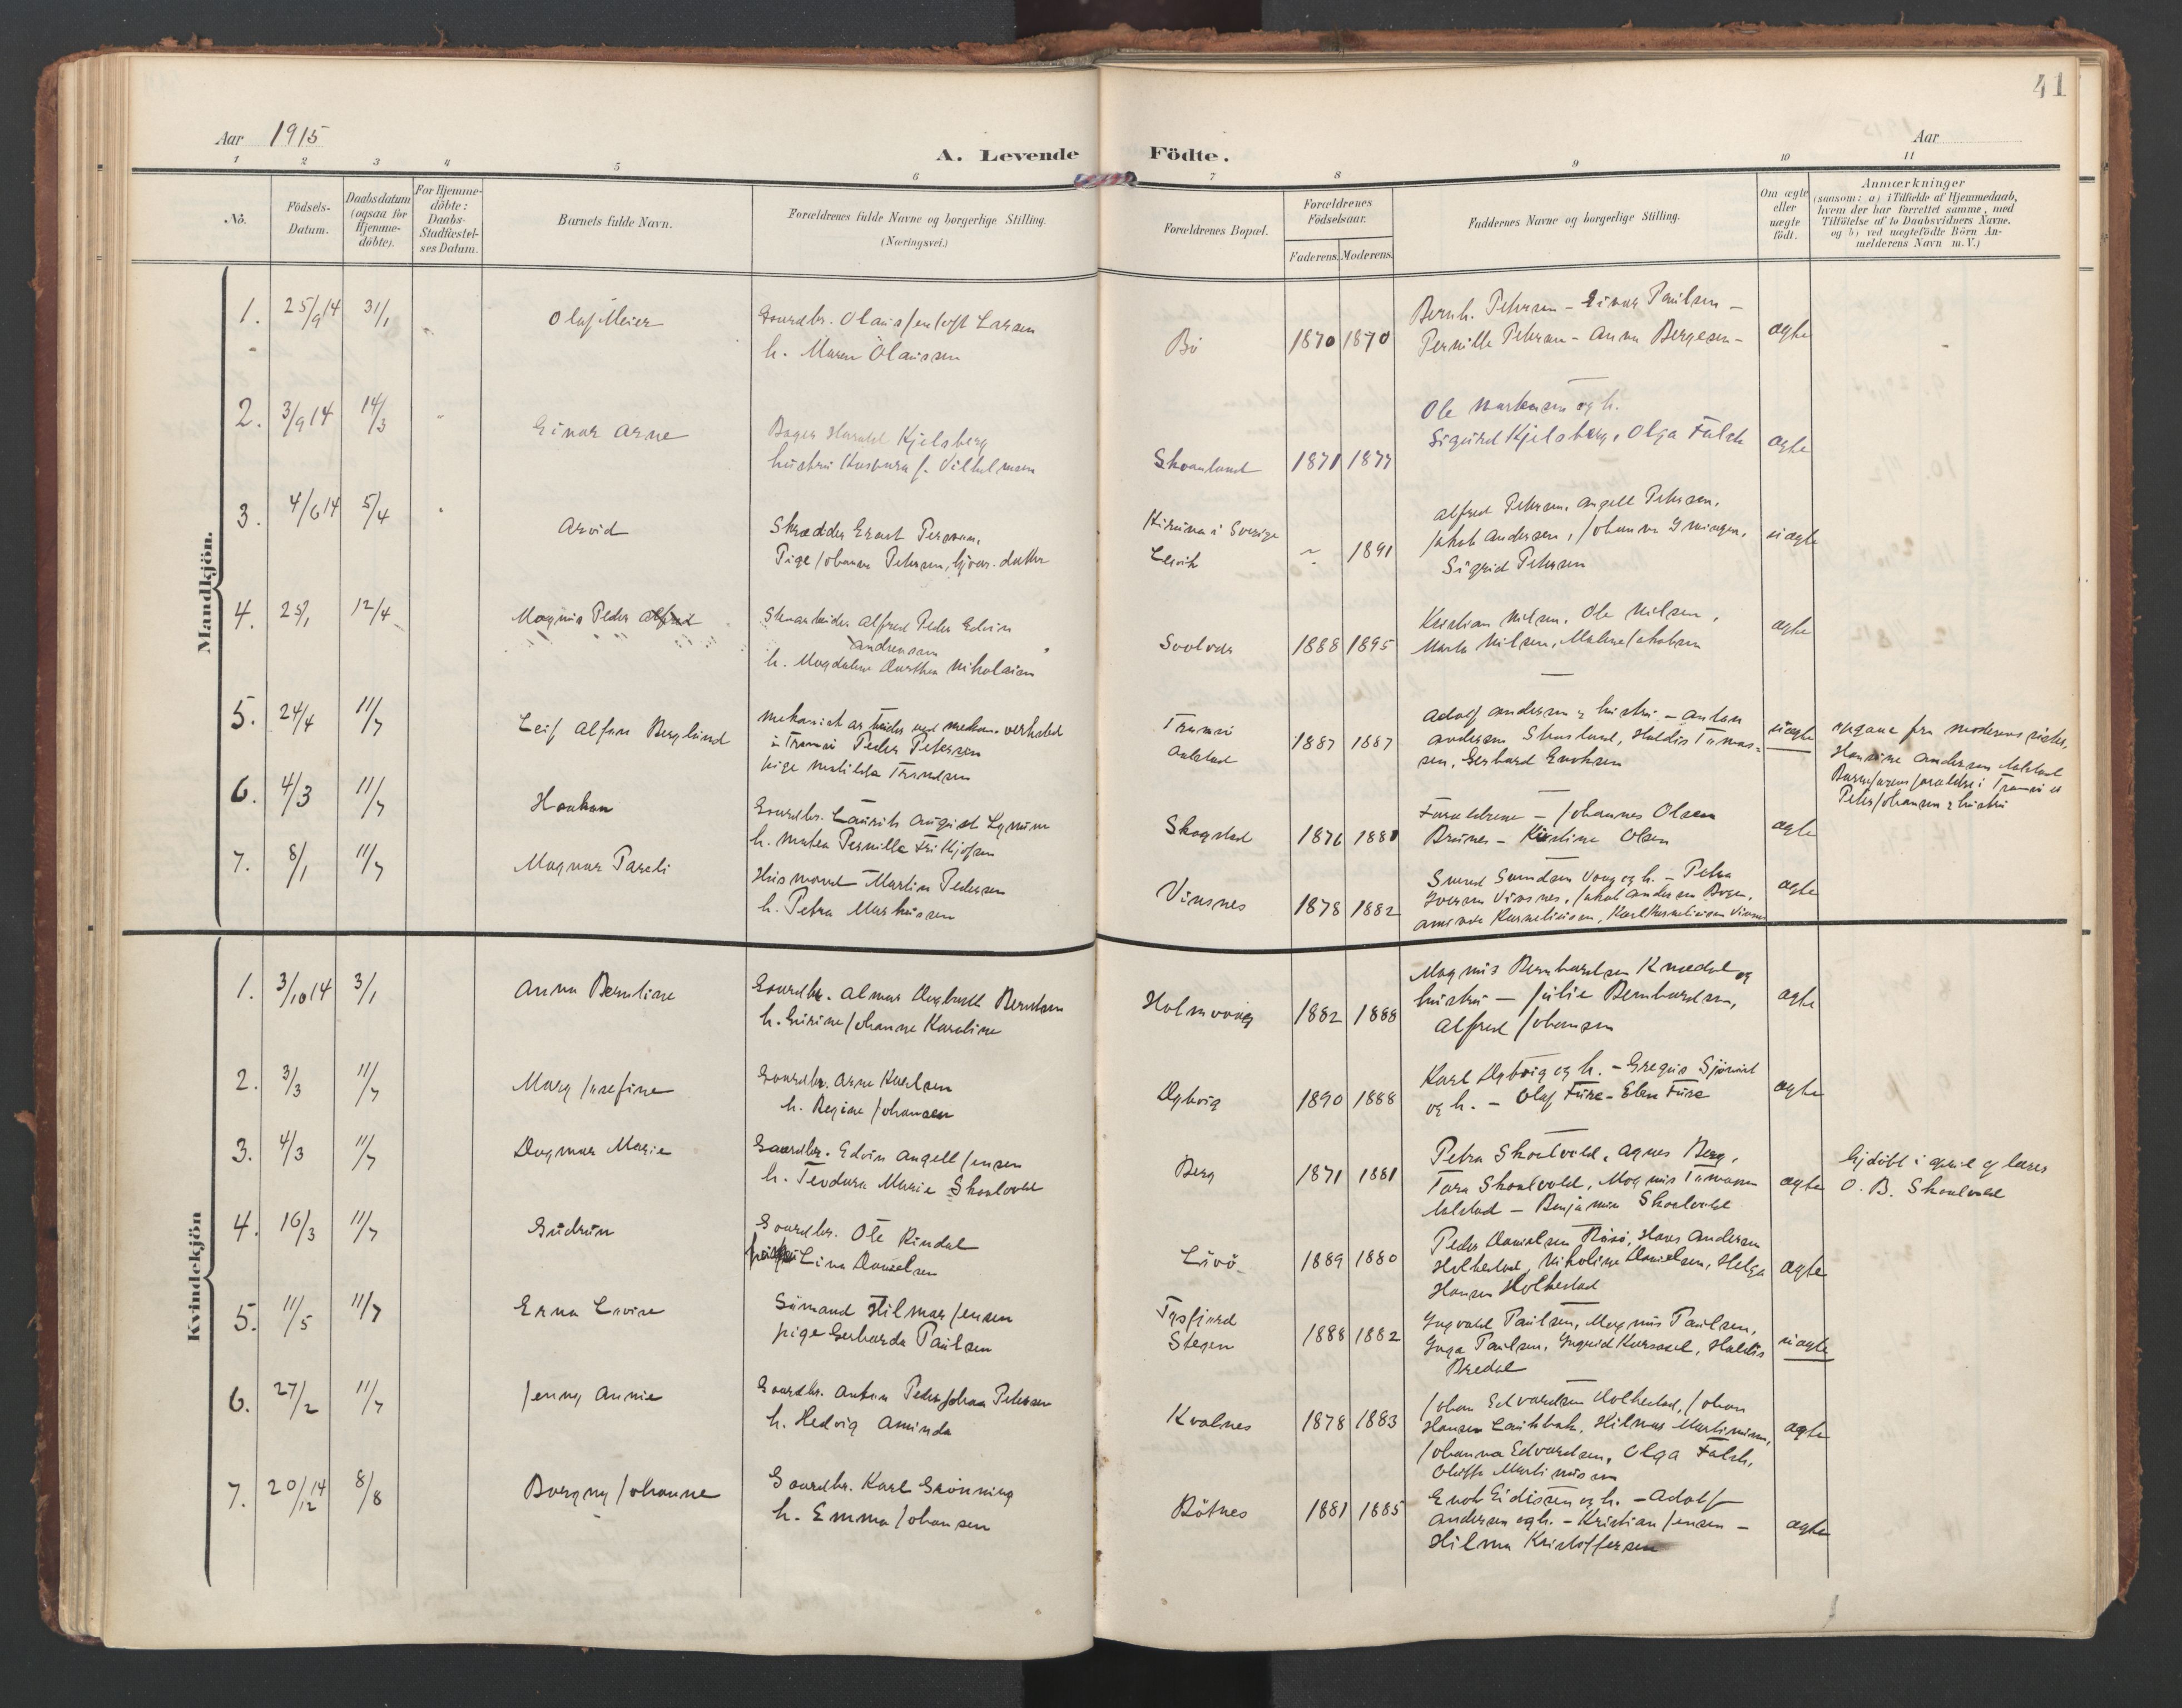 41
Aar 1915
Aar
A. Levende Födte.
1 2 3 4 5 6 7 8 9 10 11
No.
Födsels-Datum.
Daabsdatum (ogsaa for Hjemme-döbte).
For Hjemme-döbte: Daabs-Stadfæstel-ses Datum.
Barnets fulde Navn.
Forældrenes fulde Navne og borgerlige Stilling.
(Næringsvei.)
Forældrenes Bopæl.
Forældrenes Födselsaar.
Faderens. Moderens.
Faddernes Navne og borgerlige Stilling.
Om ægte eller uægte födt.
Anmærkninger
(saasom: a) i Tilfælde af Hjemmedaab,
hvem der har forrettet samme, med
Tilföielse af to Daabsvidners Navne.
og b) ved uægtefödte Börn An-
melderens Navn m. V.)
Mandkjön.
1. 25/9 14 31/1
Olaf Meier
Gaardbr. Olaus Larsen
h. Maren Olaussen
Bö 1870 1870
Bernh. Petersen - Einar Paulsen -
Pernille Petersen - Anna Bergesen -
ægte
2. 3/9 14 14/3 "
Einar Arne
Harald Kjelsberg
hustru f. Vilhelmsen
Skaanland 1871 1877
Ole Markussen og h.
Sigurd Kjelsberg, Olga Falch
ægte
3. 4/6 14 5/4 "
Arvid
Skrædder Ernst Persson,
Pige Johanna Petersen, datter
Kiruna i Sverige
Levik
~ 1891
Alfred Petersen, Angell Petersen,
Jakob Andersen, Johanna
Sigrid Petersen
uægte
4. 25/1 12/4
Magnus Peder Alfred
Alfred Peder Edvin
Andreassen
h. Magdalene Dorthea Nikolaisen
Svolvær 1888 1895
Kristian Nilsen, Ole Nilsen,
Marta Nilsen, Malene Jakobsen
ægte
5. 24/4 11/7
Leif Alfon Berglund
mekanisk arbeider ved mekan. verksted
i Tromsö Peder Petersen
pige Matilda
Tromsö
Aalstad
1887 1887
Adolf Andersen & hustru - Anton
Andersen Skarslund, Haldis Tömas-
sen, Gerhard Enoksen
uægte
opgave fra moderens söster,
Hansine Andersen Aalstad
Barnefarens forældre i Tromsö er
Peter Johansen & hustru
6. 4/3 11/7
Haakon
Gaardbr. Laurits August Lynum
h. Matea Pernille Fritjofsen
Skogstad 1876 1881
Forældrene - Johannes Olsen
Brunes - Kristine Olsen
ægte
7. 8/1 11/7
Magnar Pareli
Husmand Martin Pedersen
h. Petra Markussen
Vinsnes 1878 1882
Svend Svendsen Vaag og h. - Petra
Iversen Vinsnes, Jakob Andersen Bogen,
Aminda Korneliussen, Karl Korneliussen Vinsnes
ægte
Kvindekjön
1. 3/10 14 3/1
Anna Berntine
Gaardbr. Almar Dagbert Berntsen
h. Eirine Johanne Karoline
Holmvaag 1882 1888
Magnus Bernhardsen Knedal og
hustru - Julie Bernhardsen,
Alfred Johansen
ægte
2. 3/3 11/7
Mary Josefine
Gaardbr. Arne Karlsen
h. Regine Johansen
Dybvig 1890 1888
Karl Dybvig og h. - Gregus Sjöquist
og h. - Olaf Furre - Elen Furre
ægte
3. 4/3 11/7
Dagmar Marie
Gaardbr. Edvin Angell Jensen
h. Teodora Marie Skotvold
Berg 1871 1881
Petra Skotvold, Agnes Berg,
Tora Skotvold, Magnus Tömasen
Aalstad - Benjamin Skotvold
ægte
hjdöbt i april af lærer
O. B. Skotvold
4. 16/3 11/7
Gudrun
Gaardbr. Ole Rindal
Lina Danielsen
Livö 1889 1880
Peder Danielsen Rösö, Hans Andersen
Holkestad, Nikoline Danielsen, Helga
Hansen Holkestad
ægte
5. 11/5 11/7
Erna Lovise
Sömand Hilmar Jensen
pige Gerharda Paulsen
Tysfjord
Stegen
1888 1882
Ingvald Paulsen, Magnus Paulsen,
Inga Paulsen, Ingrid Karsveel, Haldis
Bredal
uægte
6. 27/2 11/7
Jenny Annie
Gaardbr. Anton Peder Johan Petersen
h. Hedvig Aminda
Kvalnes 1878 1883
Johan Edvardsen Holkestad, Johan
Hansen Laukbak, Hilmar Martinussen,
Johanna Edvardsen, Olga Falch,
Oluffa Martinussen
ægte
7. 20/12 14 8/8
Borgny Johanne
Gaardbr. Karl Grönning
h. Emma Johansen
Bötnes 1881 1885
Enok Eidissen og h. - Adolf
Andersen og h. - Kristian Jensen -
Hilma Kristoffersen
ægte